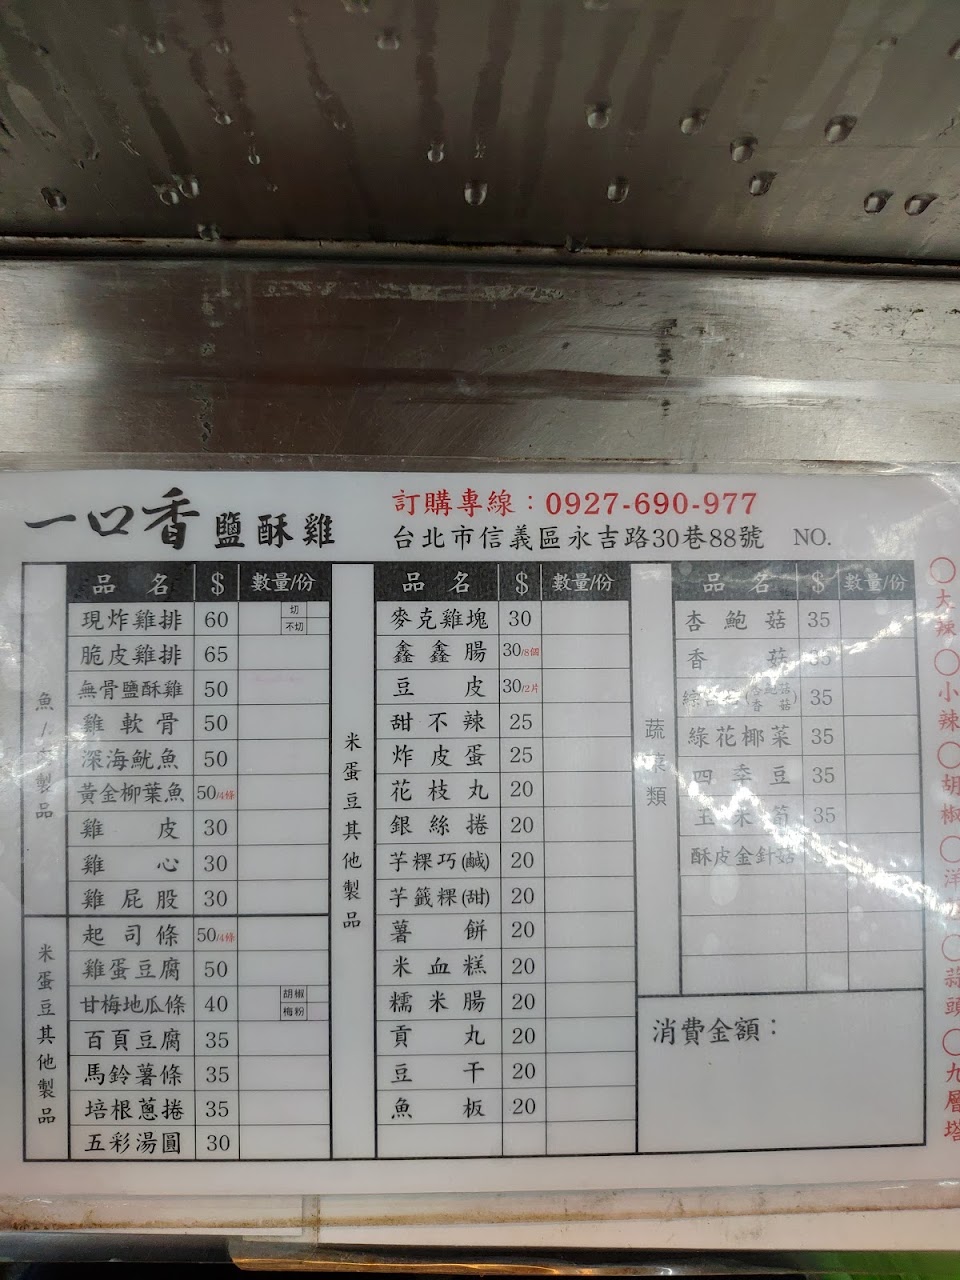 一口香鹽酥雞
訂購專線：0927-690-977
台北市信義區永吉路30巷88號 NO.
品名 $ 數量/份
魚 品
現炸雞排 60 切 不切
脆皮雞排 65
無骨鹽酥雞 50
雞軟骨 50
深海魷魚 50
黃金柳葉魚 50/4條
雞皮 30
雞心 30
雞屁股 30
米蛋豆其他製品
起司條 50/4條
雞蛋豆腐 50
甘梅地瓜條 40 胡椒 梅粉
百頁豆腐 35
馬鈴薯條 35
培根蔥捲 35
五彩湯圓 30
米蛋豆其他製品
品名 $ 數量/份
麥克雞塊 30
鑫鑫腸 30/8個
豆皮 30/2片
甜不辣 25
炸皮蛋 25
花枝丸 20
銀絲捲 20
芋粿巧(鹹) 20
芋籤粿(甜) 20
薯餅 20
米血糕 20
糯米腸 20
貢丸 20
豆干 20
魚板 20
蔬菜類
品名 $ 數量/份
杏鮑菇 35
香菇 35
綜合菇(杏鮑菇 香菇) 35
綠花椰菜 35
四季豆 35
玉米筍 35
酥皮金針菇
消費金額：
○大辣
○小辣
○胡椒
○洋
○蒜頭
○九層塔